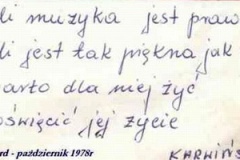 li muzyka jest praw
li jest tak piękna jak
arto dla niej żyć
oświęcić jej życie
KARWIŃS
rd - październik 1978r